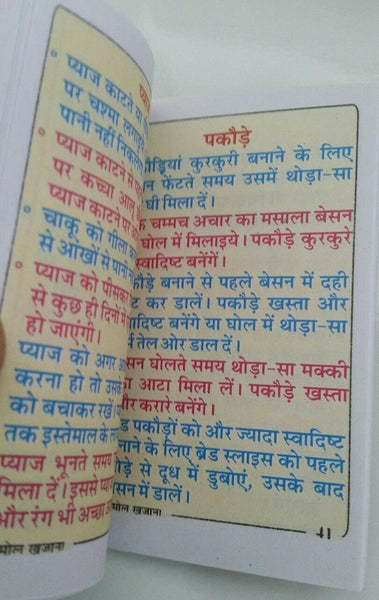 प्याज काटते
पर चश्मा लगाइये
पानी नहीं निकले
प्याज काटने से
पर कच्चा आलू
प्याज काटने पर
चाकू को गीला
से आंखों से पानी
प्याज को पीसकर
से कुछ ही दिनों में
हो जाएंगी।
प्याज को अगर
करना हो तो उसके
को बचाकर रखें।
तक इस्तेमाल के
प्याज भूनते समय
मिला दें। इससे
और रंग भी अच्छा
मोल खजाना
पकौड़े
कुरकुरी बनाने के लिए
फेंटते समय उसमें थोड़ा-सा
घी मिला दें।
चम्मच अचार का मसाला बेसन
घोल में मिलाइये। पकौड़े कुरकुरे
स्वादिष्ट बनेंगें।
बनाने से पहले बेसन में दही
कर डालें। पकौड़े खस्ता और
बनेंगे या घोल में थोड़ा-सा
तेल ओर डाल दें।
घोलते समय थोड़ा-सा मक्की
का आटा मिला लें। पकौड़े खस्ता
और करारे बनेंगे।
पकौड़ों को और ज्यादा स्वादिष्ट
के लिए ब्रेड स्लाइस को पहले
से दूध में डुबोएं, उसके बाद
में डालें।
मोल खजाना
41